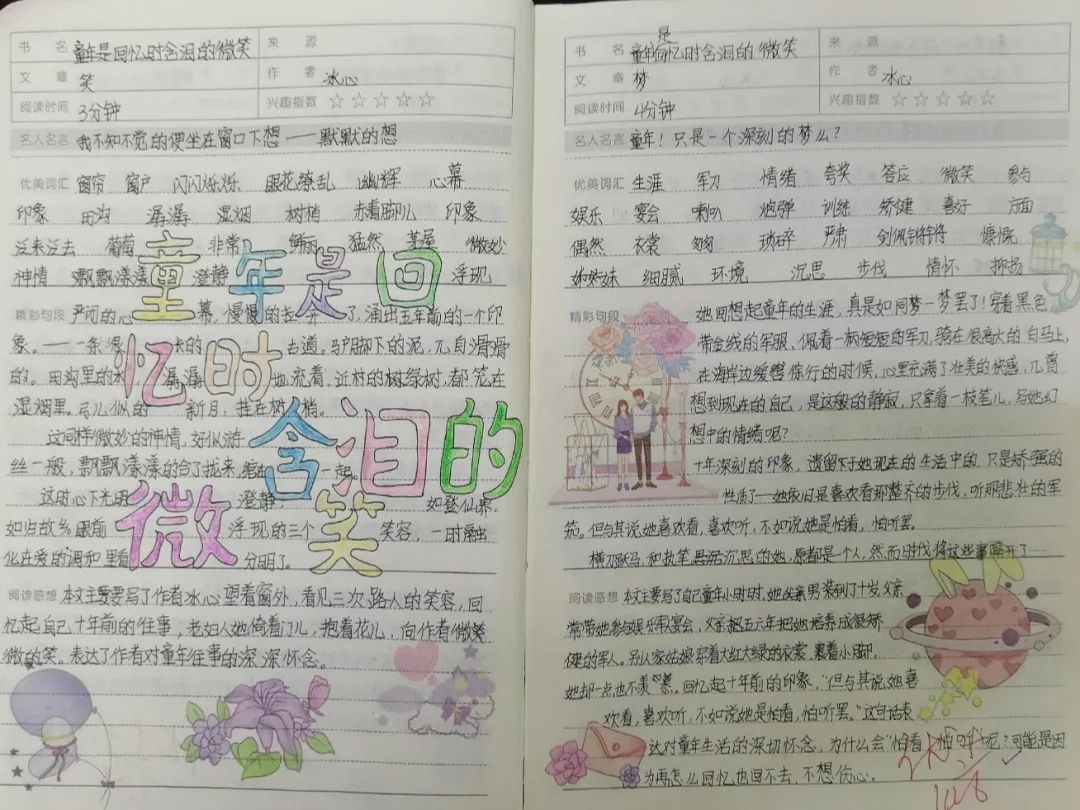 书 名 童年是回忆时含泪的微笑 来 源
文 章 笑 作 者 冰心
阅读时间 3分钟 兴趣指数 ☆☆☆☆☆
名人名言 我不知不觉的便坐在窗口下想——默默的想
优美词汇 窗帘 窗户 闪闪烁烁 眼花缭乱 幽辉 心幕
印象 田沟 潺潺 湿烟 树梢 赤着脚儿 印象
泛来泛去 葡萄 非常 鲜丽 猛然 茅屋 微妙
神情 飘飘漾漾 澄静 浮现
童年是回
忆时
含泪的
微笑
精彩句段 严闭的心幕,慢慢的拉开了,涌出五年前的一个印
象。——一条很长的古道。驴脚下的泥,兀自滑滑
的。田沟里的水潺潺地流着,近村的树绿树,都笼在
湿烟里。弓儿似的新月,挂在树梢。
这同样微妙的神情,好似游
丝一般,飘飘漾漾的合了拢来,绾在一起。
这时心下光明澄静,如登仙界,
如归故乡。眼前浮现的三个笑容,一时融
化在爱的调和里看分明了。
阅读感想 本文主要要写了作者冰心望着窗外,看见三次路人的笑容,回
忆起自己十年前的往事,老妇人她倚着门儿,抱着花儿,向作者微笑
微的笑。表达了作者对童年往事的深深怀念。
书 名 童年是回忆时含泪的微笑 来 源
文 章 梦 作 者 冰心
阅读时间 4分钟 兴趣指数 ☆☆☆☆☆
名人名言 童年!只是一个深刻的梦么?
优美词汇 生涯 军刀 情绪 夸奖 答应 微笑 参与
娱乐 宴会 喇叭 炮弹 训练 矫健 喜好 方面
偶然 衣裳 匆匆 琐碎 严肃 剑佩锵锵 慷慨
姊妹 细腻 环境 沉思 步伐 情怀 抑扬
精彩句段 她回想起童年的生涯,真是如同梦一梦罢了!穿着黑色
带金线的军服、佩着一柄短短的军刀,骑在很高大的白马上,
在海岸边缓辔徐行的时候,心里充满了壮美的快感,几曾
想到现在的自己,是这般的静寂,只拿着一枝笔儿,写她幻
想中的情绪呢?
十年深刻的印象,遗留下于她现在的生活中的,只是矫强的
性质了——她依旧是喜欢看那整齐的步伐,听那悲壮的军
笳。但与其说她喜欢看,喜欢听,不如说她是怕看,怕听罢。
横刀跃马,和执笔沉思的她,原都是一个人,然而时代将这些事隔开了……
阅读感想 本文主要写了自己童年小时时,她从来男装到了十岁,父亲
常带她参与娱乐和宴会,父亲把五六年把她培养成很矫
健的军人。别人家姑娘穿着大红大绿的衣裳,裹着小脚,
她却一点也不羡慕。回忆起十年前的印象,“但与其说她喜
欢看,喜欢听,不如说她是怕看,怕听罢。”这句话表
达对童年生活的深切怀念,为什么会“怕看、怕听”呢?可能是因
为再怎么回忆也回不去,不想伤心。